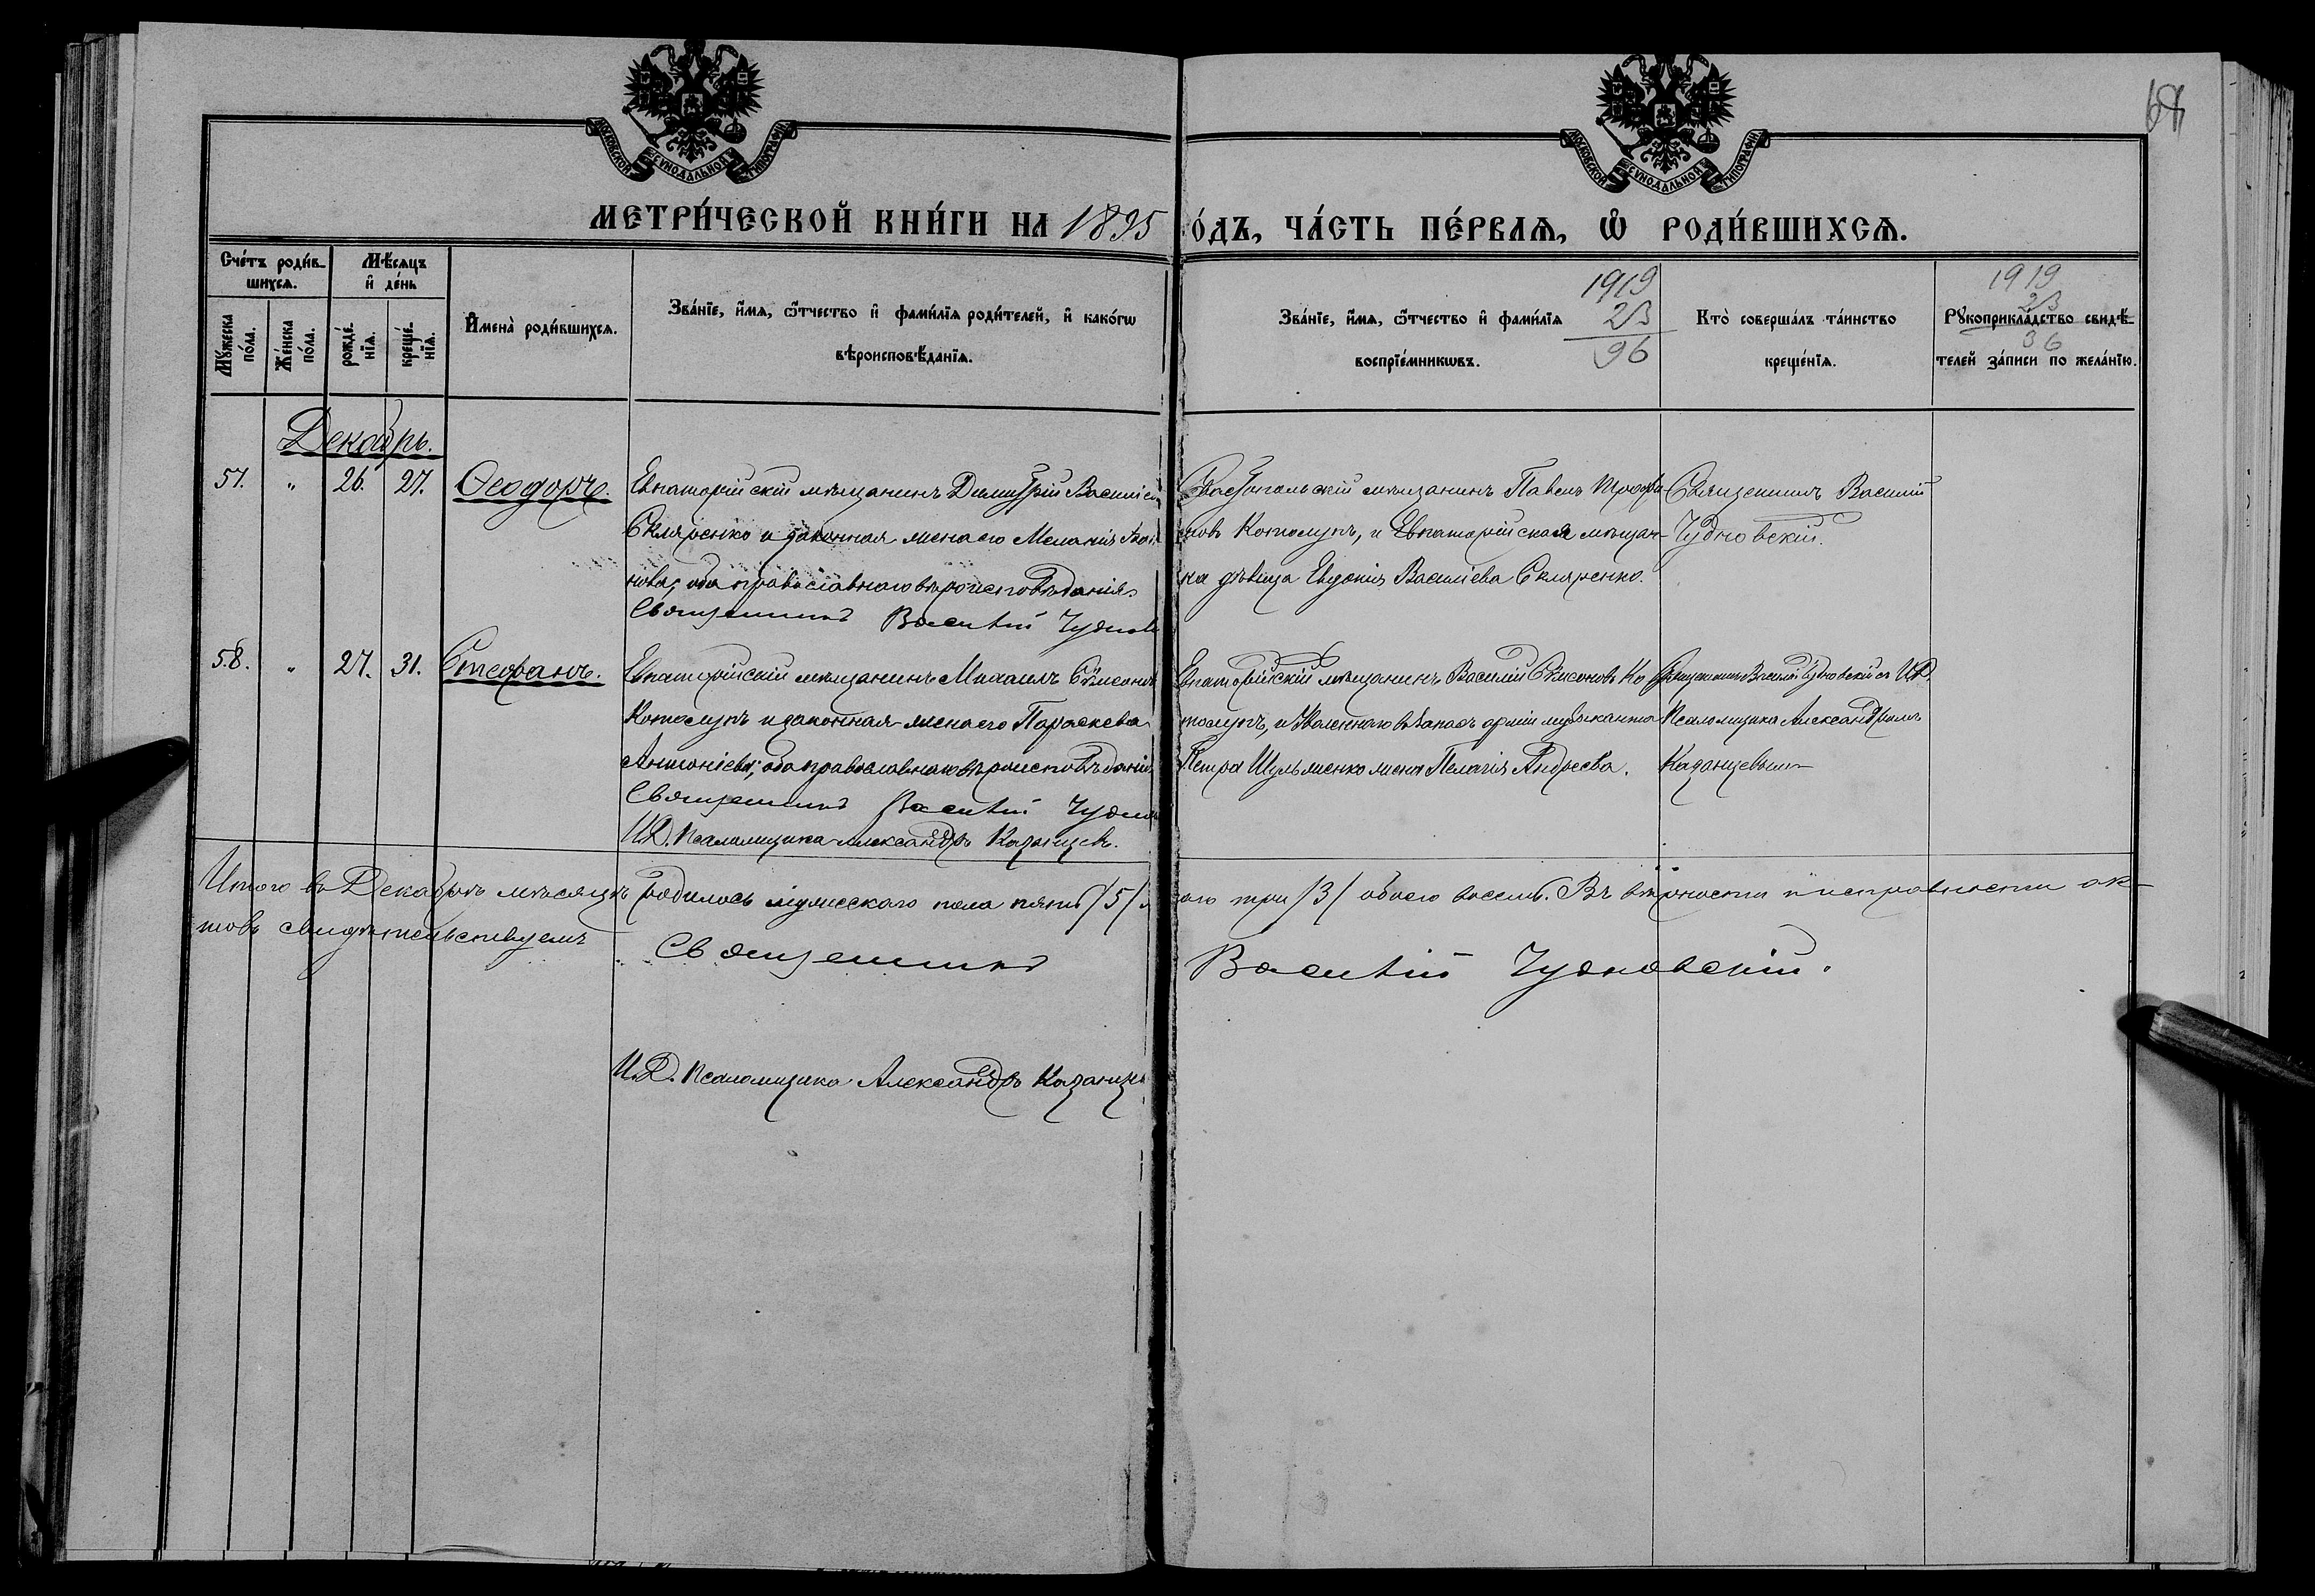 МОСКОВСКОЙ СУНОДАЛЬНОЙ ТИПОГРАФІИ
МОСКОВСКОЙ СУНОДАЛЬНОЙ ТИПОГРАФІИ
68
МЕТРИ́ЧЕСКОЙ КНИ́ГИ НА 1895
О́ДЪ, ЧА́СТЬ ПЕ́РВАѦ, Ѡ РОДИ́ВШИХСѦ.
Сче́тъ роди́в-
шихсѧ.
Мꙋжеска
по́ла.
Же́нска
по́ла.
Мѣ́сѧцъ
и҆ де́нь
рожде́-
нїѧ.
креще́-
нїѧ.
И҆мена̀ роди́вшихсѧ.
Зва́нїе, и҆́мѧ, ѻ҆́тчество и҆ фами́лїѧ роди́телей, и҆ како́гѡ
вѣроисповѣ́данїѧ.
Зва́нїе, и҆́мѧ, ѻ҆́тчество и҆ фами́лїѧ
воспрїе́мникѡвъ.
1919
23
96
Кто̀ соверша́лъ та́инство
креще́нїѧ.
1919
23
96
Рꙋкоприкла́дство свидѣ́-
телей за́писи по жела́нїю.
Декабрь.
57. " 26. 27. Ѳеодоръ.
Евпаторійскій мѣщанинъ Димитрій Василіев
Скляренко и законная жена его Меланія
нова; оба православнаго вѣроисповѣданія.
Священникъ Василій Чуднов
Севастопольскій мѣщанинъ Павелъ Трофи-
мовъ Котолупъ, и Евпаторійская мѣщан-
ка дѣвица Евдокія Василіева Скляренко.
Священникъ Василій
Чудновскій.
58. " 27. 31. Стефанъ.
Евпаторійскій мѣщанинъ Михаилъ Сѵмеоновъ
Котолупъ и законная жена его Параскева
Антоніева; оба православнаго вѣроисповѣданія.
Священникъ Василій Чуднов
И.Д. Псаломщика Александръ Казанцевъ.
Евпаторійскій мѣщанинъ Василій Сѵмеоновъ Ко-
толупъ, и уволеннаго въ запасъ арміи музыканта
Петра Шульженко жена Пелагія Андреева.
Священникъ Василій Чудновскій съ И.Д.
Псаломщика Александромъ
Казанцевымъ
Итого въ Декабрѣ мѣсяцѣ родилось мужескаго пола пять /5/
аго три /3/ обоего восемь. Въ вѣрности и исправности ак-
товъ свидѣтельствуемъ
Священникъ Василій Чудновскій.
И.Д. Псаломщика Александръ Казанце